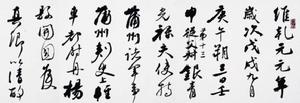 維乾元元年
歲次戊戌九月
庚午朔三日壬
申第十三從父銀青
光祿夫使持
蒲州諸軍事
蒲州刺史上輕
車都尉丹楊
縣開國侯
真卿以清酌